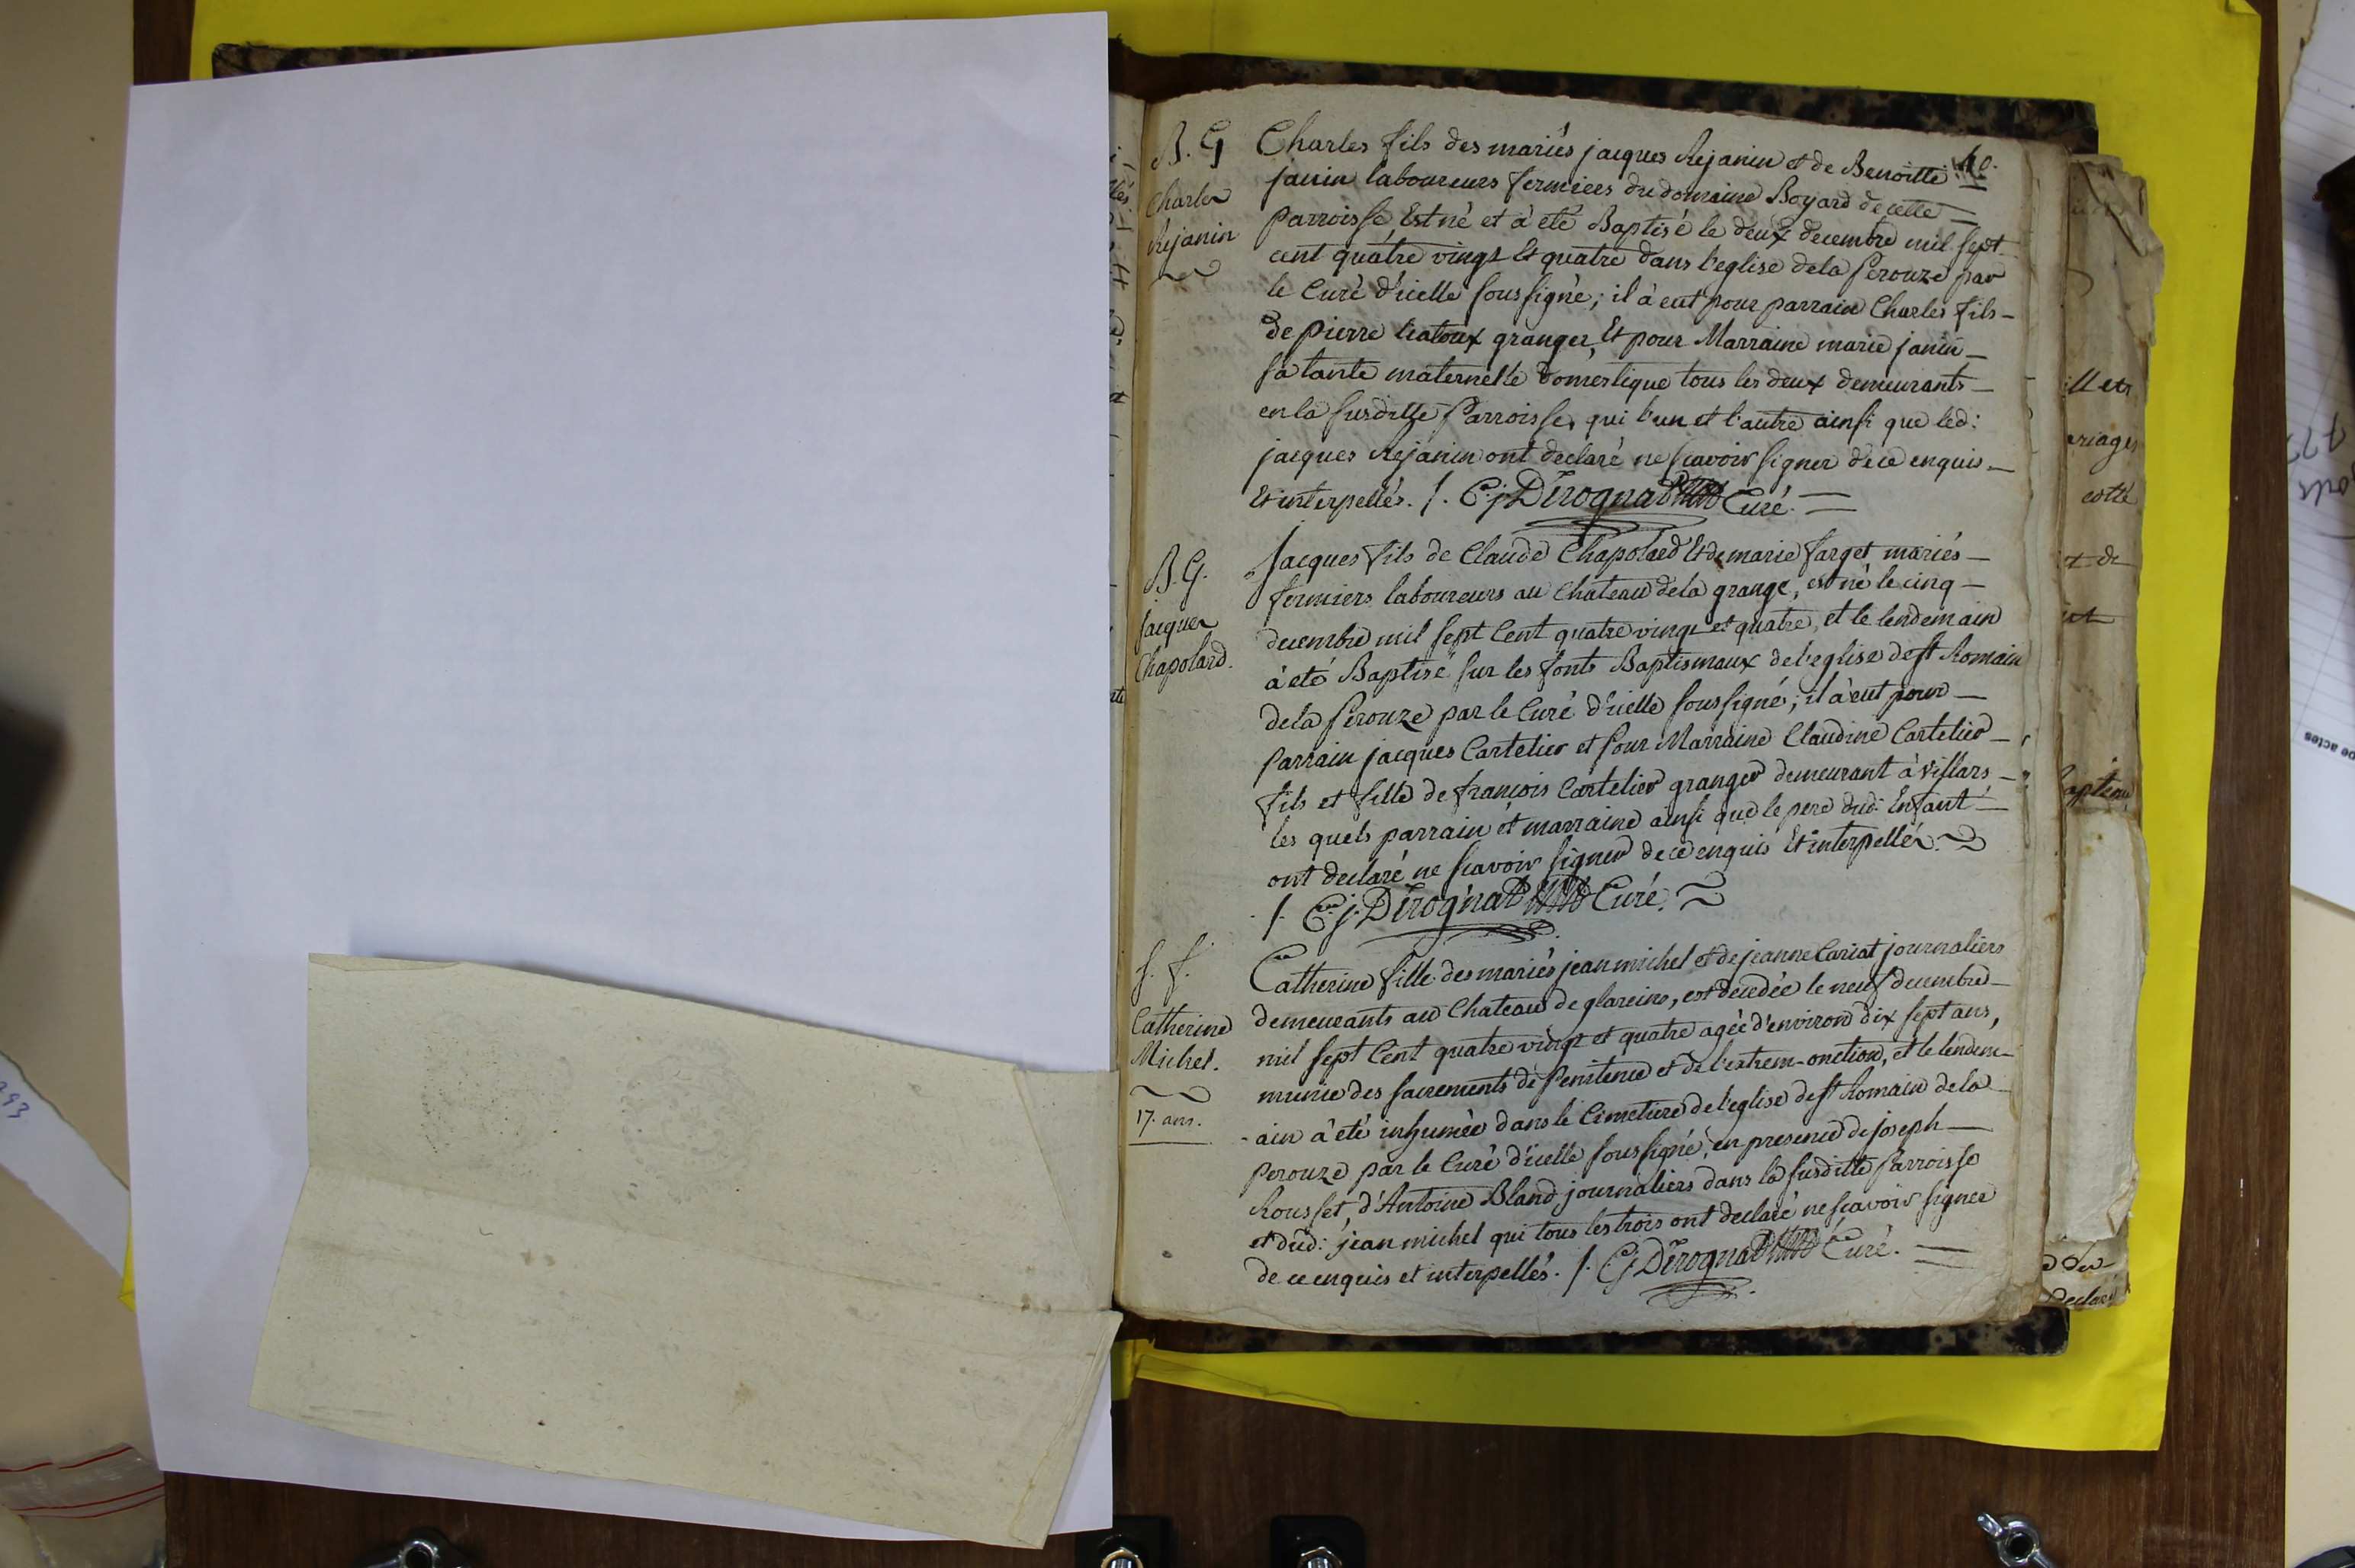 B. G
Charles
Rejanin
Charles fils des mariés jacques Rejanin et de Benoitte
40.
janin laboureurs fermiers du domaine Boyard de cette
Parroisse, Est né et à eté Baptisé le deux decembre mil sept
cent quatre vingt Et quatre dans l'eglise dela Perouze par
le Curé d'icelle soussigné; il à eut pour parrain Charles fils
de pierre granger, Et pour Marraine marie janin
sa tante maternelle domestique tous les deux demeurants
en la susditte Parroisse, qui l'un et l'autre ainsi que led:
jacques Rejanin ont declaré ne scavoir signer de ce enquis
Et interpellés. /. C. j. Derognat Curé.
B. G.
jacques
Chapolard.
Jacques fils de Claude Chapolard Et de marie farget mariés
fermiers laboureurs au Chateau dela grange, est né le cinq
decembre mil sept Cent quatre vingt et quatre, et le lendemain
à eté Baptisé sur les fonts Baptismaux de l'eglise de st Romain
dela Perouze par le Curé d'icelle soussigné; il à eut pour
Parrain jacques Cartelier et pour Marraine Claudine Cartelier
fils et fille de françois Cartelier granger demeurant à villars
les quels parrain et marraine ainsi que le pere dud: Enfant
ont declaré ne scavoir signer de ce enquis Et interpellés.
/. C. j. Derognat Curé.
S. f.
Catherine
Michel.
17. ans.
Catherine fille des mariés jean michel et de jeanne Cariat journaliers
demeurants au Chateau de glareins, est decedée le neuf decembre
mil sept Cent quatre vingt et quatre agée d'environ dix sept ans,
munie des sacrements de Penitence et de l'extrem-onction, et le lendem-
-ain à eté inhumée dans le Cimetiere de l'eglise de st Romain dela
Perouze par le Curé d'icelle soussigné, en presence de joseph
Rousset, d'Antoine Bland journaliers dans la susditte Parroisse
et dud: jean michel qui tous les trois ont declaré ne scavoir signer
de ce enquis et interpellés. /. C. j. Derognat Curé.